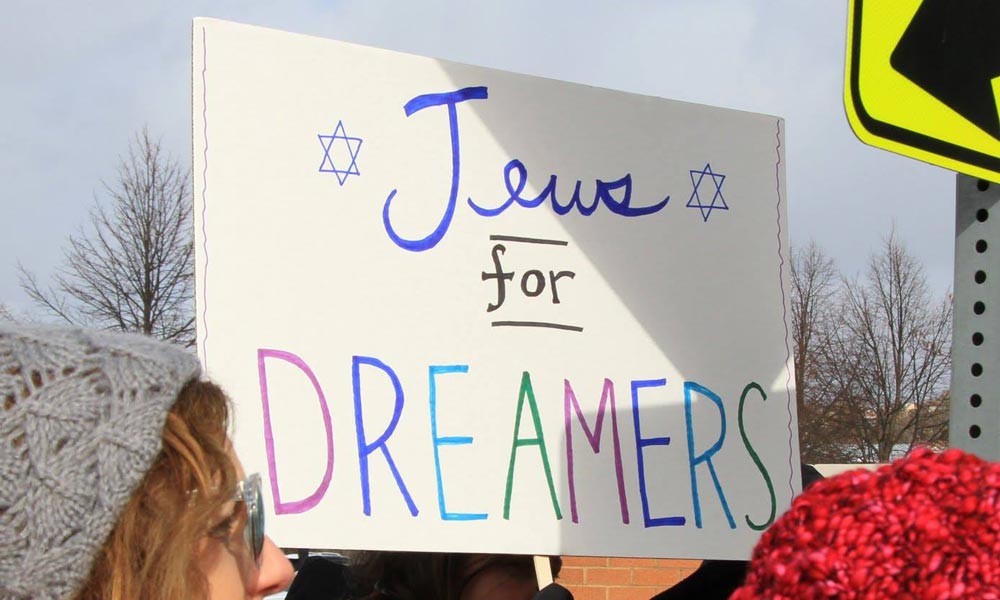 Jews
for
DREAMERS